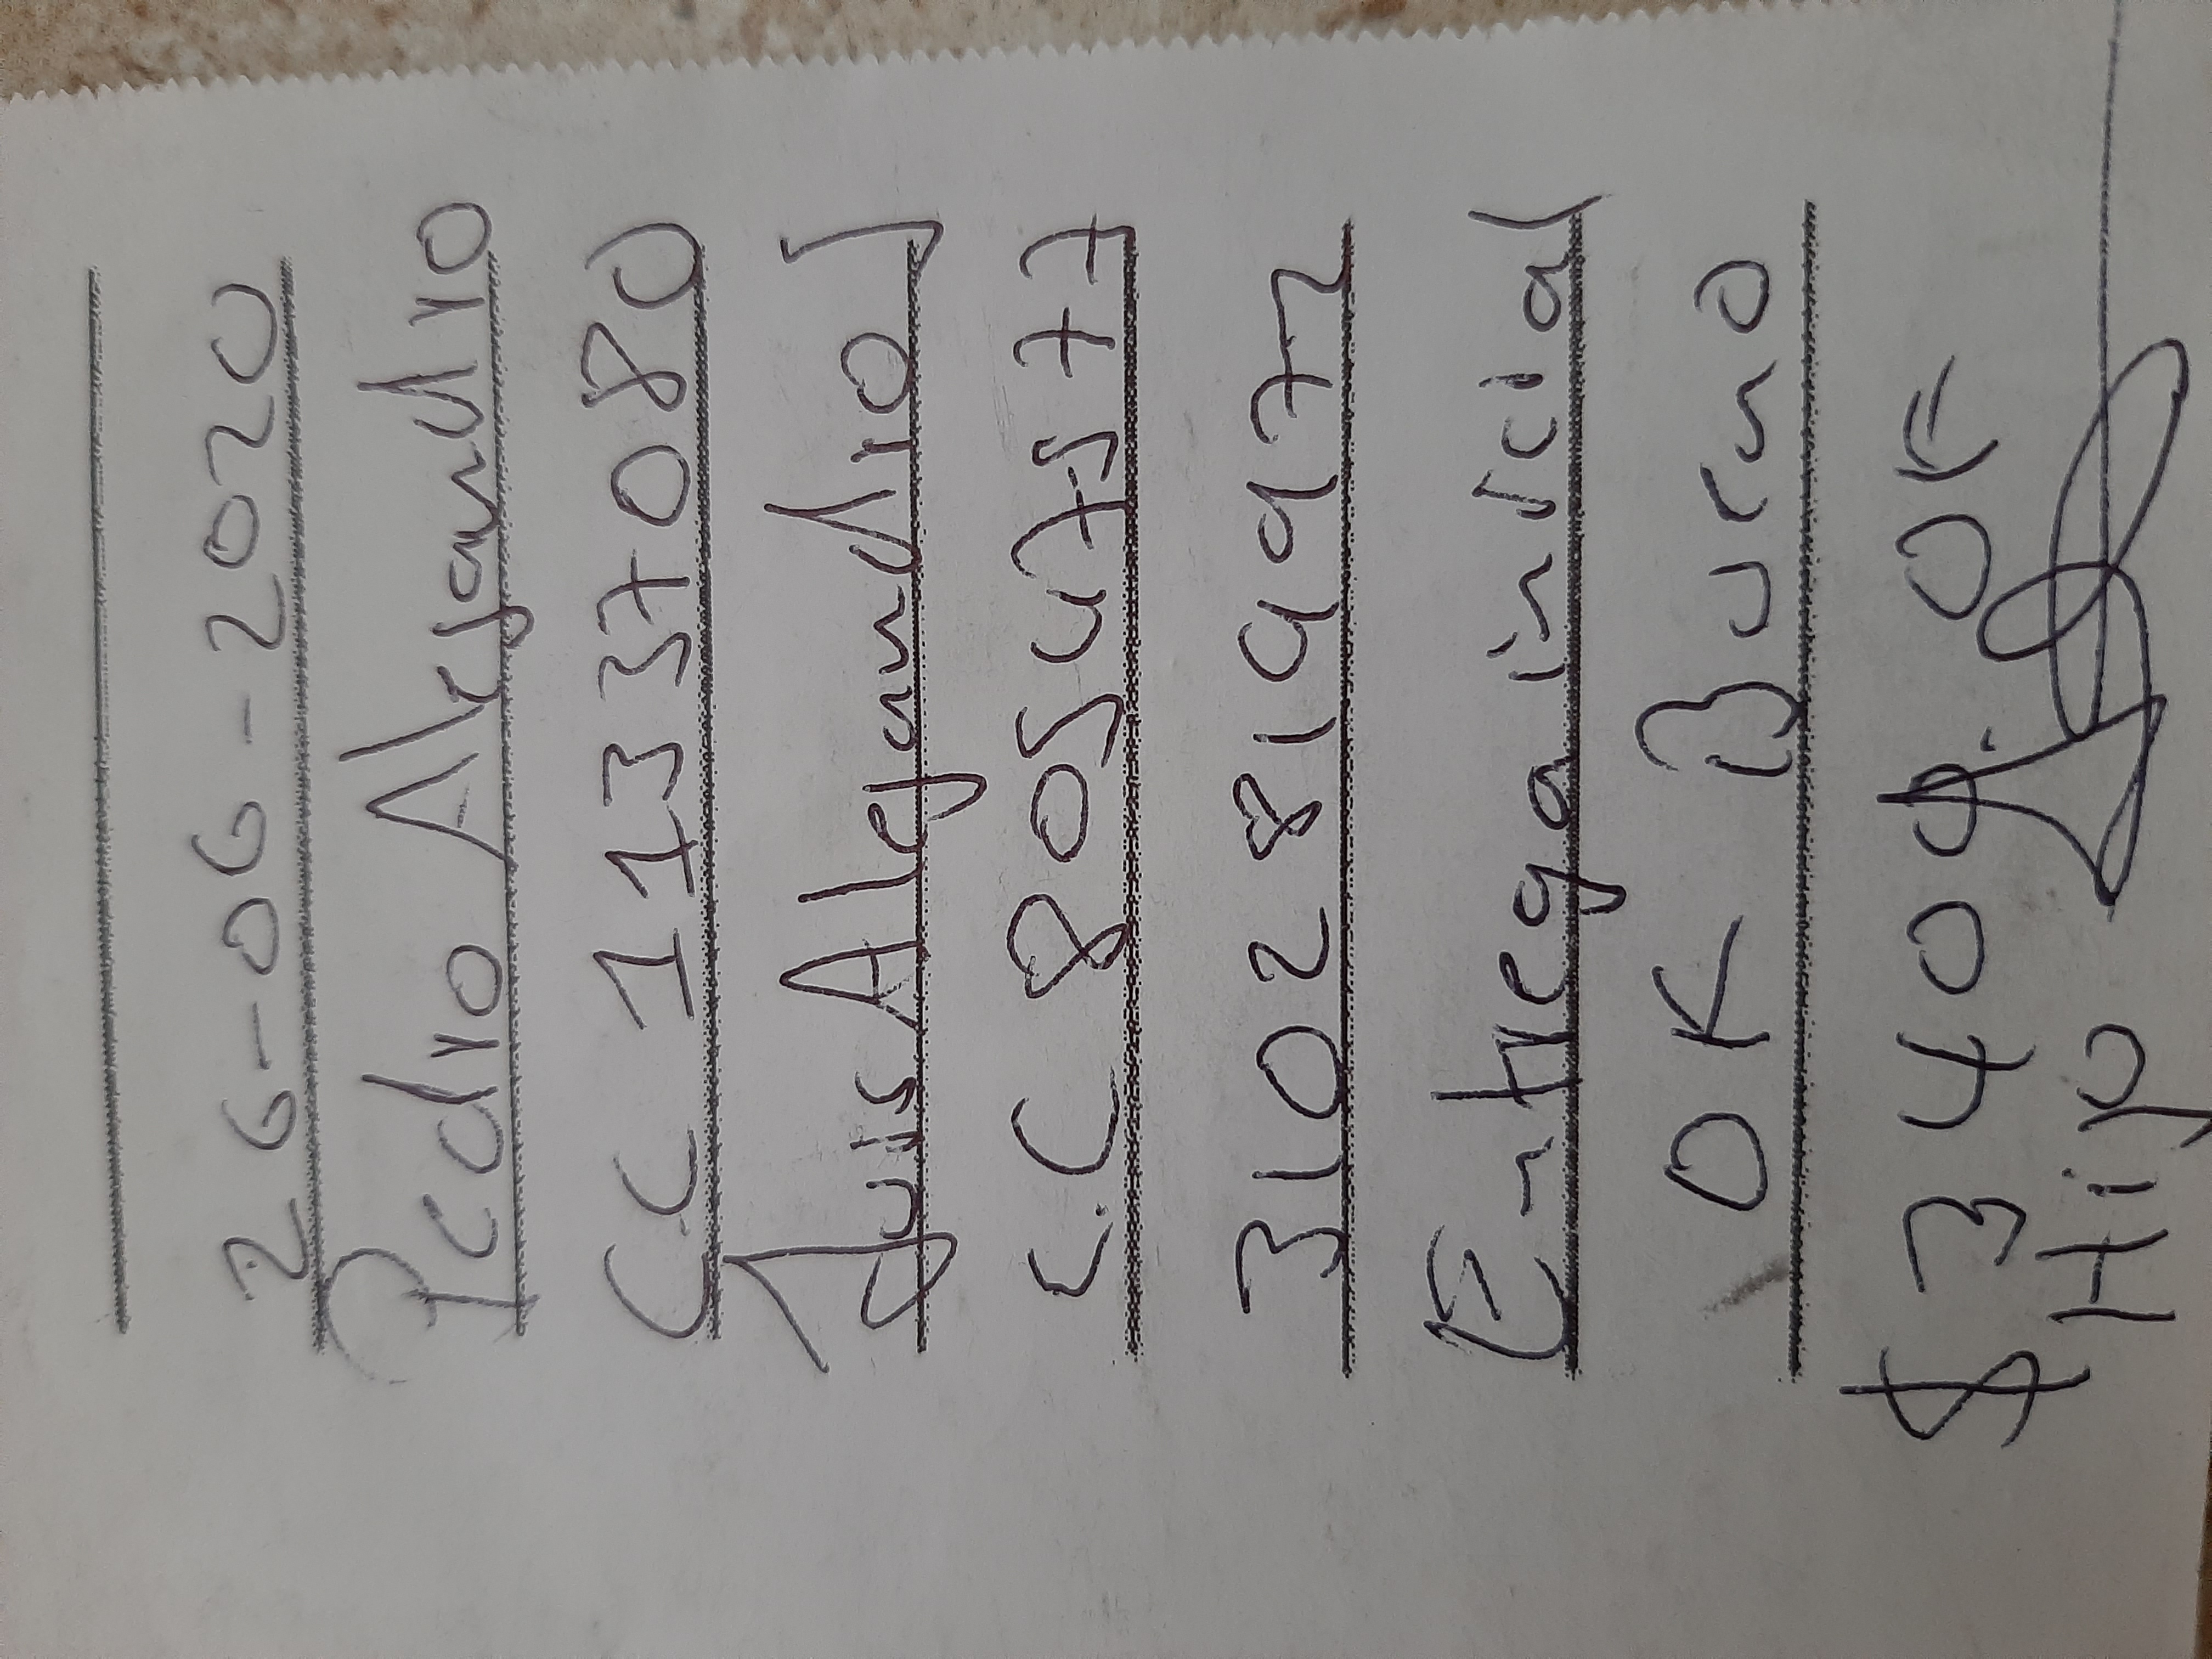 26-06-2020
Pedro Alejandro
C.C 11337080
Luis Alejandro J
C.C 80547577
3102819972
Entrega inicial
OK Bueno
$ 3409. OK
Hip